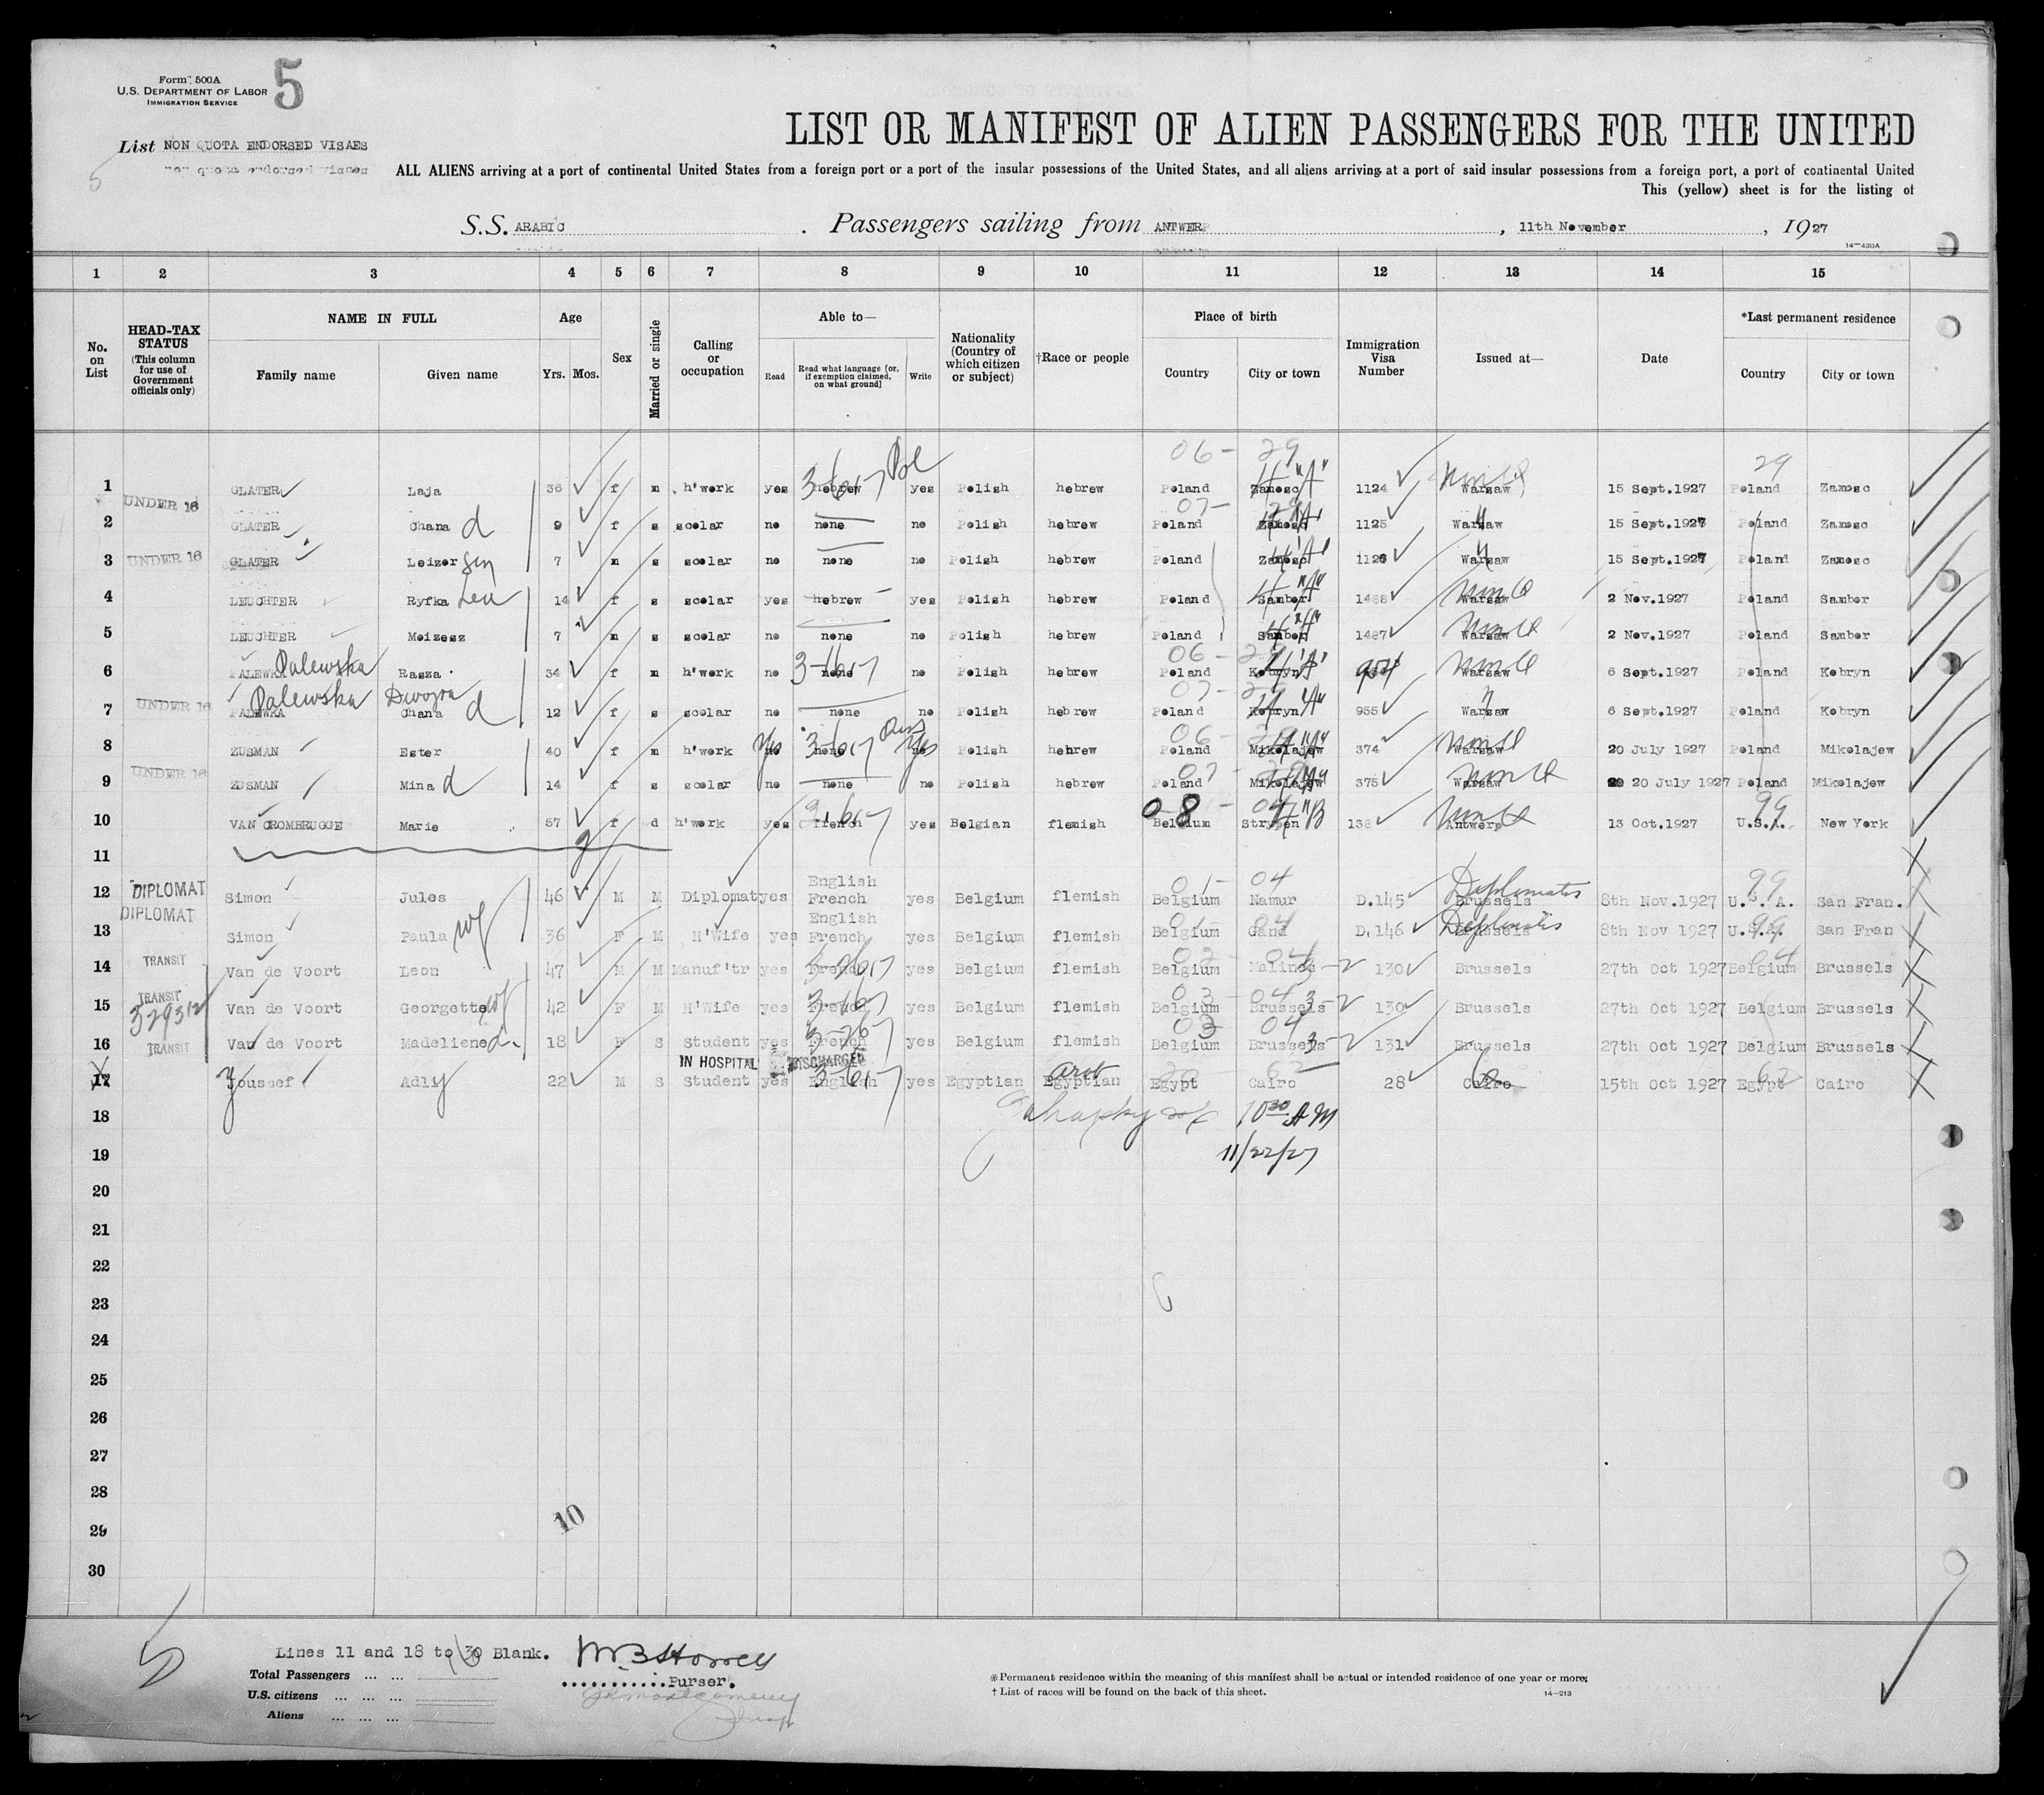 Form 500A
U.S. DEPARTMENT OF LABOR
IMMIGRATION SERVICE
5
LIST OR MANIFEST OF ALIEN PASSENGERS FOR THE UNITED
List NON QUOTA ENDORSED VISAES
non quota endorsed visaes
5
ALL ALIENS arriving at a port of continental United States from a foreign port or a port of the insular possessions of the United States, and all aliens arriving at a port of said insular possessions from a foreign port, a port of continental United
This (yellow) sheet is for the listing of
S.S. ARABIC . Passengers sailing from ANTWERP , 11th November , 1927
14—430A
1 2 3 4 5 6 7 8 9 10 11 12 13 14 15
No. on List
HEAD-TAX STATUS (This column for use of Government officials only)
NAME IN FULL Family name Given name
Age Yrs. Mos.
Sex
Married or single
Calling or occupation
Able to— Read Read what language [or, if exemption claimed, on what ground] Write
Nationality (Country of which citizen or subject)
†Race or people
Place of birth Country City or town
Immigration Visa Number
Issued at—
Date
*Last permanent residence Country City or town
06 - 29 29
1 UNDER 16 GLATER Laja 36 f m h'work yes hebrew Pol yes Polish hebrew Poland Zamosc 1124 Warsaw 15 Sept.1927 Poland Zamosc
07- 29
2 GLATER Chana d 9 f s scolar no none no Polish hebrew Poland Zamosc 1125 Warsaw 15 Sept.1927 Poland Zamosc
3 UNDER 16 GLATER Leizer 7 m s scolar no none no Polish hebrew Poland Zamosc 1126 Warsaw 15 Sept.1927 Poland Zamosc
4 LEUCHTER Ryfka 14 f s scolar yes hebrew yes Polish hebrew Poland Sambor 1488 Warsaw 2 Nov.1927 Poland Sambor
5 LEUCHTER Moizesz 7 m s scolar no none no Polish hebrew Poland Sambor 1487 Warsaw 2 Nov.1927 Poland Sambor
06 - 29
6 PALEWKA Palewska Rasza 34 f m h'work no none no Polish hebrew Poland Kobryn 954 Warsaw 6 Sept.1927 Poland Kobryn
07 - 29
7 UNDER 16 PALEWKA Palewska Dwojra Chana d 12 f s scolar no none no Polish hebrew Poland Kobryn 955 Warsaw 6 Sept.1927 Poland Kobryn
06 - 29
8 ZUSMAN Ester 40 f m h'work no Yes none Rus no Yes Polish hebrew Poland Mikolajew 374 Warsaw 20 July 1927 Poland Mikolajew
07 - 29
9 UNDER 16 ZUSMAN Mina d 14 f s scolar no none no Polish hebrew Poland Mikolajew 375 Warsaw 20 July 1927 Poland Mikolajew
08 - 04 99
10 VAN CROMBRUGGE Marie 57 f d h'work yes french yes Belgian flemish Belgium Strypen 136 Antwerp 13 Oct.1927 U.S.A. New York
11
01 - 04 99
12 DIPLOMAT Simon Jules 46 M M Diplomat yes English French yes Belgium flemish Belgium Namur D.145 Brussels Diplomatis 8th Nov.1927 U.S.A. San Fran.
01 - 04 99
13 DIPLOMAT Simon Paula wf 36 F M H'Wife yes English French yes Belgium flemish Belgium Gand D.146 Brussels 8th Nov 1927 U.S.A. San Fran
02 - 04 04
14 TRANSIT Van de Voort Leon 47 M M Manuf'tr yes French yes Belgium flemish Belgium Malines 3-2 130 Brussels 27th Oct 1927 Belgium Brussels
03 - 04
15 TRANSIT Van de Voort Georgette wf 42 F M H'Wife yes French yes Belgium flemish Belgium Brussels 3-2 130 Brussels 27th Oct 1927 Belgium Brussels
03 04
16 TRANSIT Van de Voort Madeliene d. 18 F S Student yes French yes Belgium flemish Belgium Brussels 3-2 131 Brussels 27th Oct 1927 Belgium Brussels
IN HOSPITAL DISCHARGED
17 Youssef Adly 22 M S Student yes English yes Egyptian Egyptian Arab Egypt Cairo 28 Cairo 15th Oct 1927 Egypt Cairo
18 10 30 A M
19 11/22/27
20
21
22
23
24
25
26
27
28
29
10
30
Lines 11 and 18 to 30 Blank.
Purser.
Total Passengers ... ...
U.S. citizens ... ... ...
Aliens ... ... ...
*Permanent residence within the meaning of this manifest shall be actual or intended residence of one year or more.
† List of races will be found on the back of this sheet.
14—213